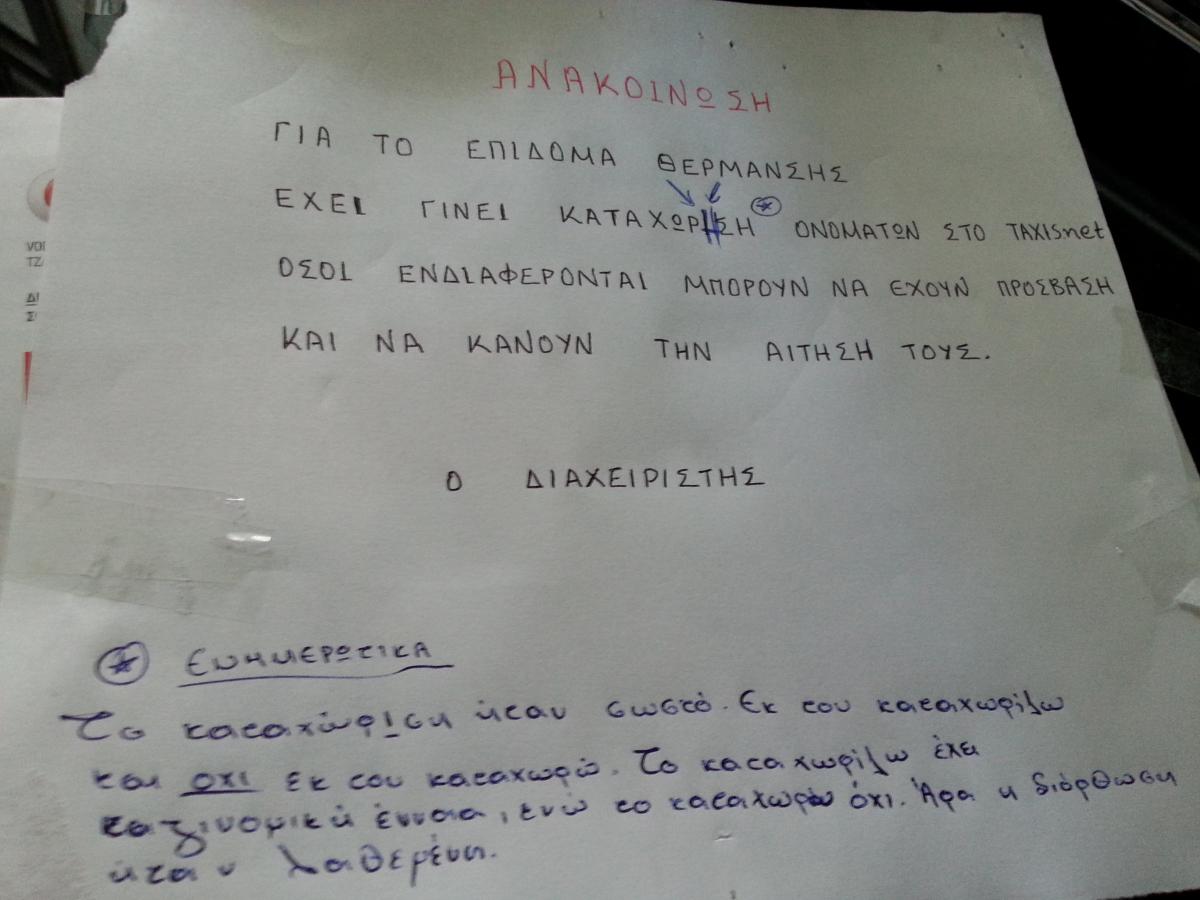 ΑΝΑΚΟΙΝΩΣΗ
ΓΙΑ ΤΟ ΕΠΙΔΟΜΑ ΘΕΡΜΑΝΣΗΣ
ΕΧΕΙ ΓΙΝΕΙ ΚΑΤΑΧΩΡΗΣΗ * ΟΝΟΜΑΤΩΝ ΣΤΟ TAXISnet
ΟΣΟΙ ΕΝΔΙΑΦΕΡΟΝΤΑΙ ΜΠΟΡΟΥΝ ΝΑ ΕΧΟΥΝ ΠΡΟΣΒΑΣΗ
ΚΑΙ ΝΑ ΚΑΝΟΥΝ ΤΗΝ ΑΙΤΗΣΗ ΤΟΥΣ.
Ο ΔΙΑΧΕΙΡΙΣΤΗΣ
* ΕΝΗΜΕΡΩΤΙΚΑ
Το καταχώριση ήταν σωστό. Εκ του καταχωρίζω
και όχι εκ του καταχωρώ. Το καταχωρίζω έχει
ταξινομική έννοια, ενώ το καταχωρώ όχι. Άρα η διόρθωση
ήταν λαθεμένη.